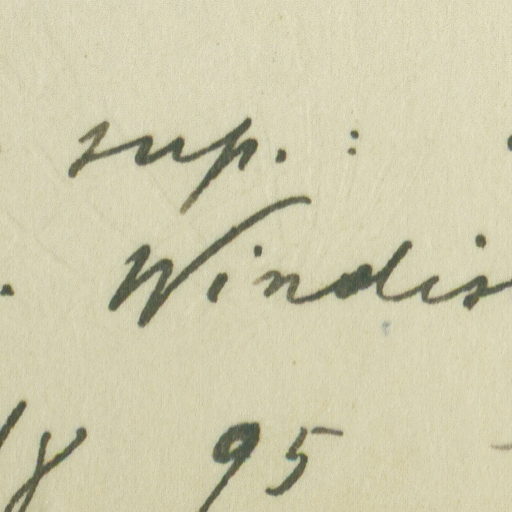 sup. :
. Windis
/8 95